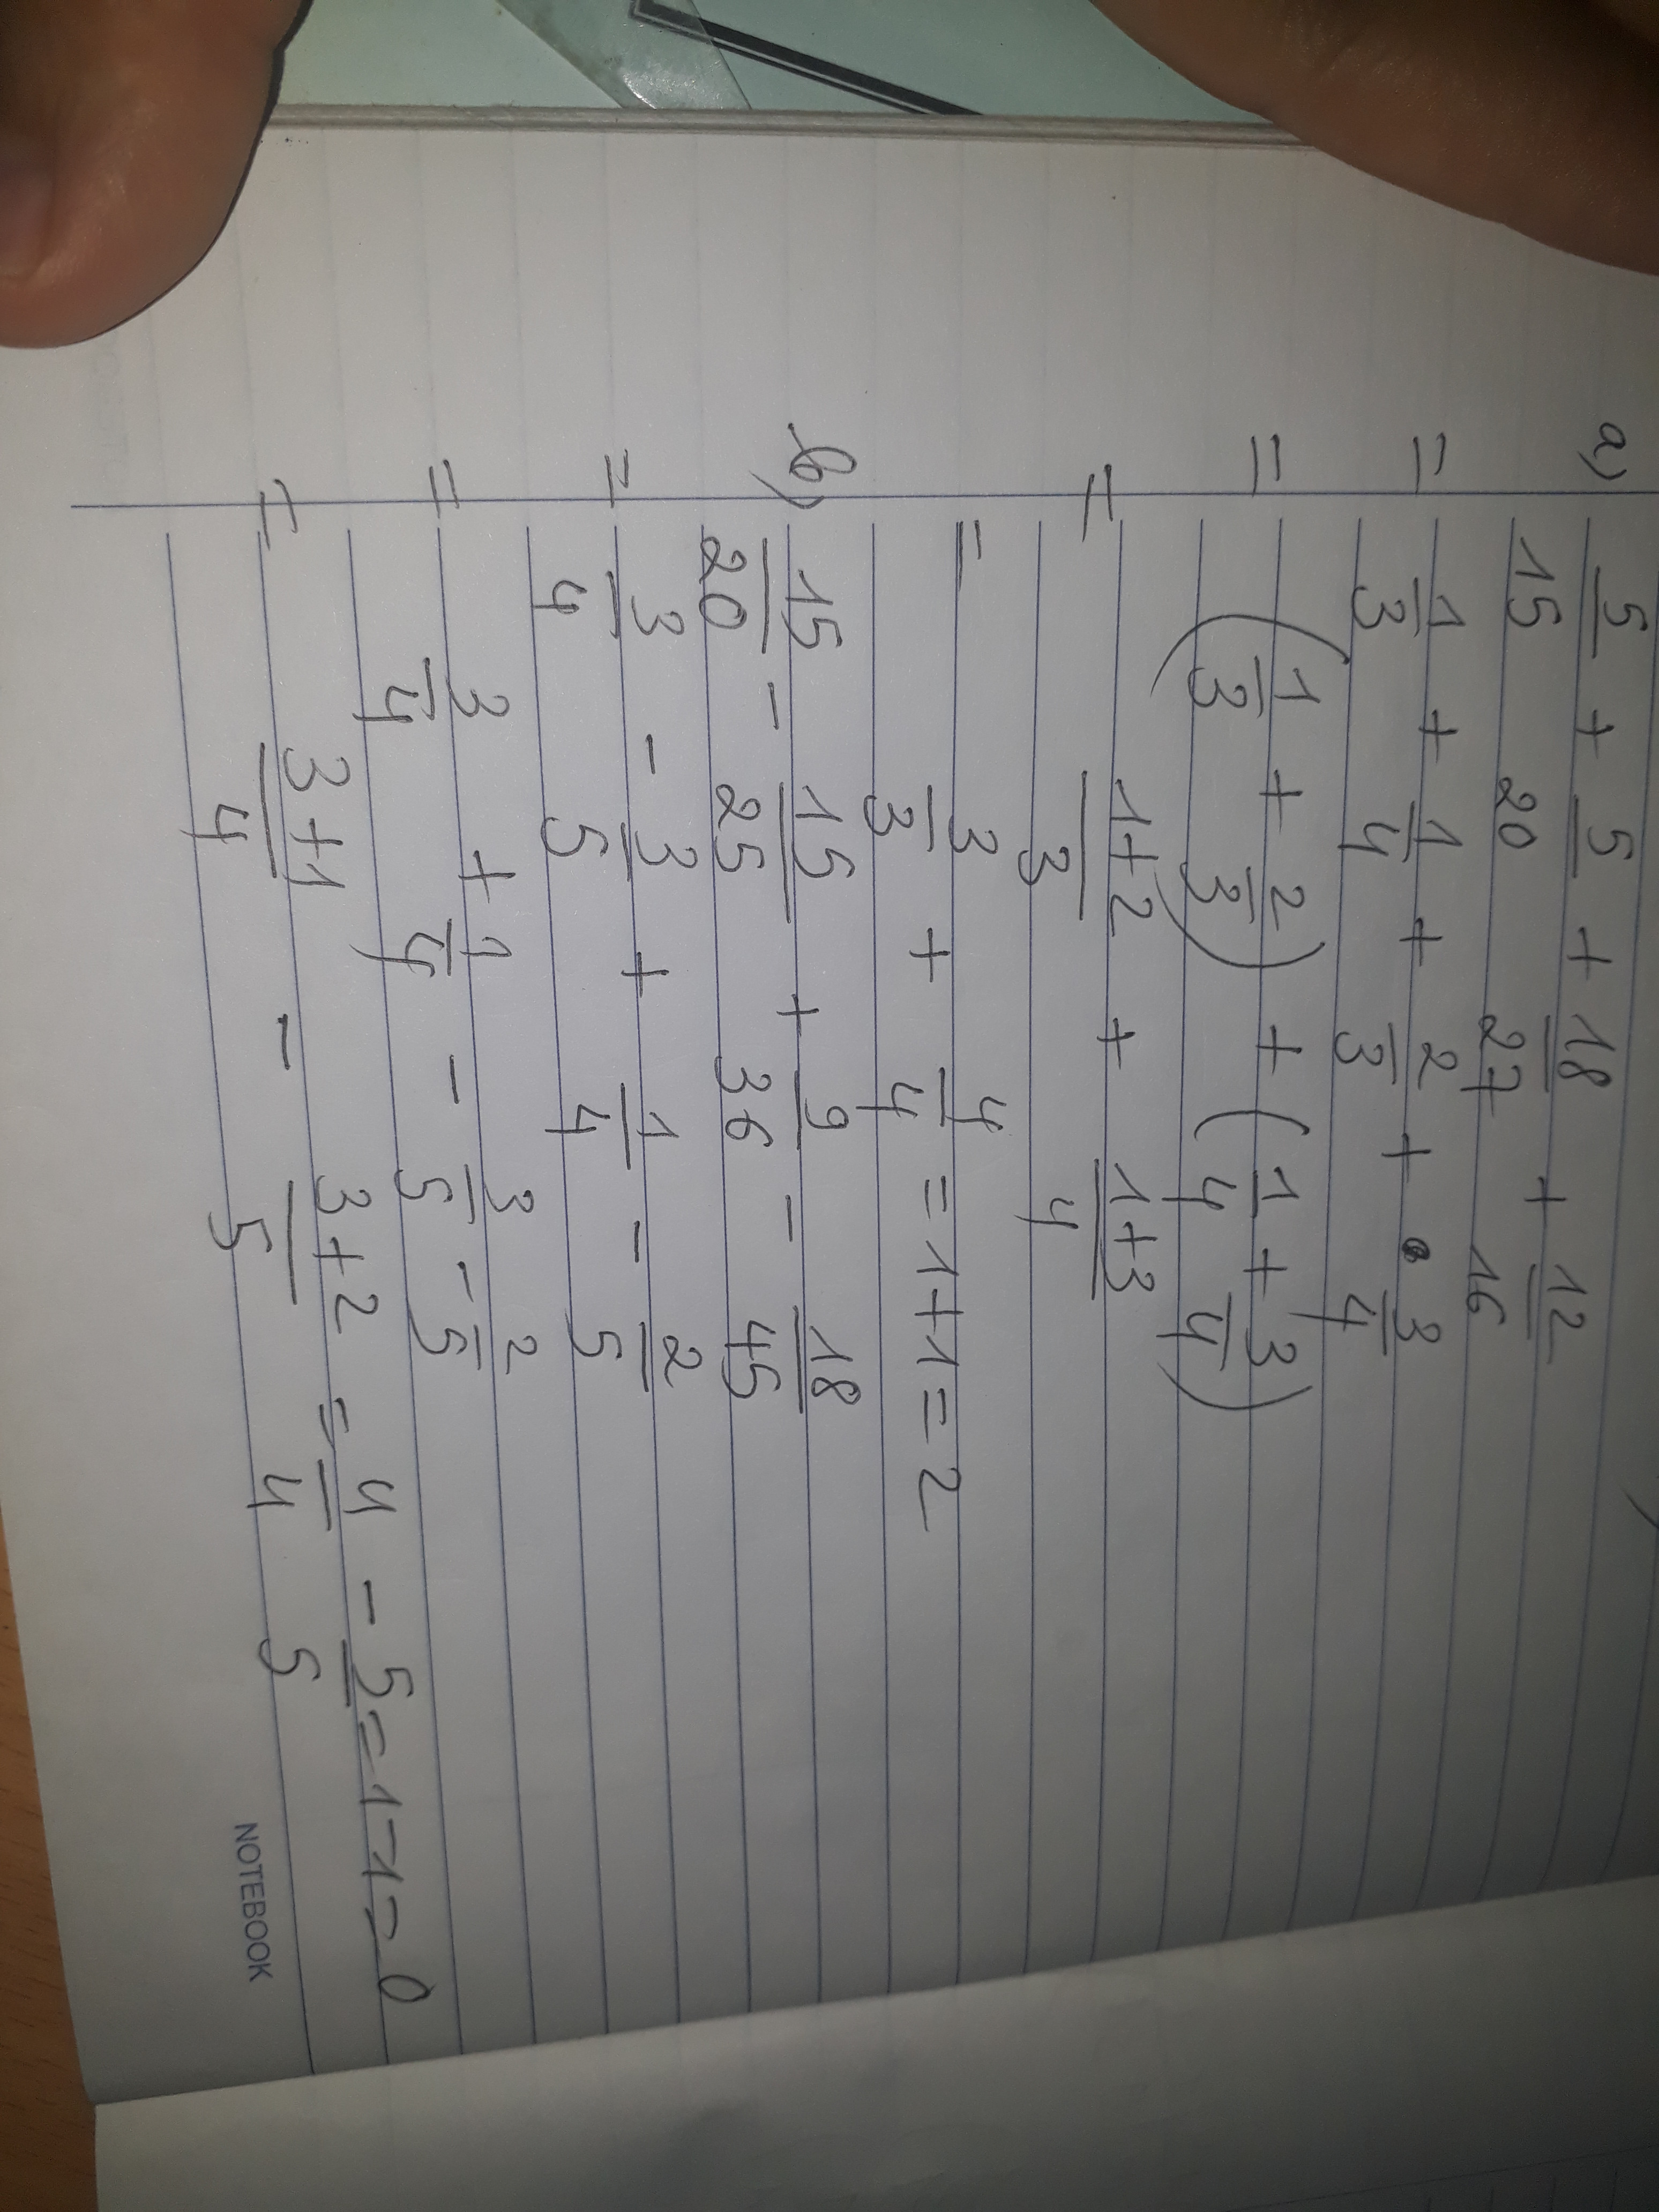 a) 5/15 + 5/20 + 18/27 + 12/16
= 1/3 + 1/4 + 2/3 + 3/4
= (1/3 + 2/3) + (1/4 + 3/4)
= 1+2/3 + 1+3/4
= 3/3 + 4/4 = 1+1 = 2
b) 15/20 - 15/25 + 9/36 - 18/45
= 3/4 - 3/5 + 1/4 - 2/5
= 3/4 + 1/4 - 3/5 - 2/5
= 3+1/4 - 3+2/5 = 4/4 - 5/5 = 1-1 = 0
NOTEBOOK